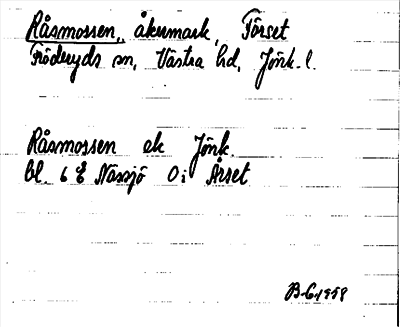 Råsmossen, åkermark, Törset
Fröderyds sn, Västra hd, Jönk. l.
Råsmossen ek Jönk.
bl. 6 E Nässjö O i Årset
B-G 1958